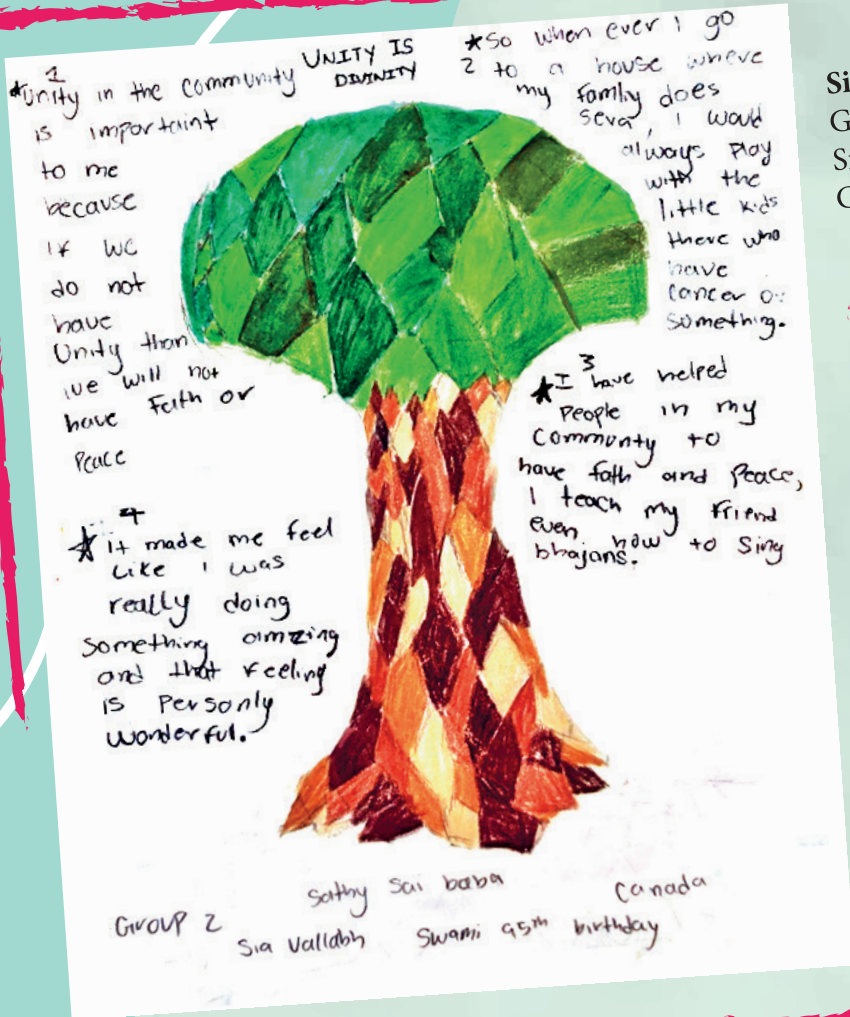 UNITY IS
DIVINITY
1
*Unity in the community
is importaint
to me
because
if we
do not
have
Unity than
we will not
have Faith or
Peace
*So when ever i go
2 to a house where
my family does
seva, I would
always Play
with the
little kids
there who
have
cancer or
something.
3
*I have helped
People in my
Community to
have fath and Peace,
I teach my friend
even how to sing
bhajans.
4
*it made me feel
Like i was
really doing
something amzing
and that feeling
is Personly
wonderful.
Sathy Sai baba
Canada
Group 2
Sia Vallabh Swami 95th birthday
Si
G